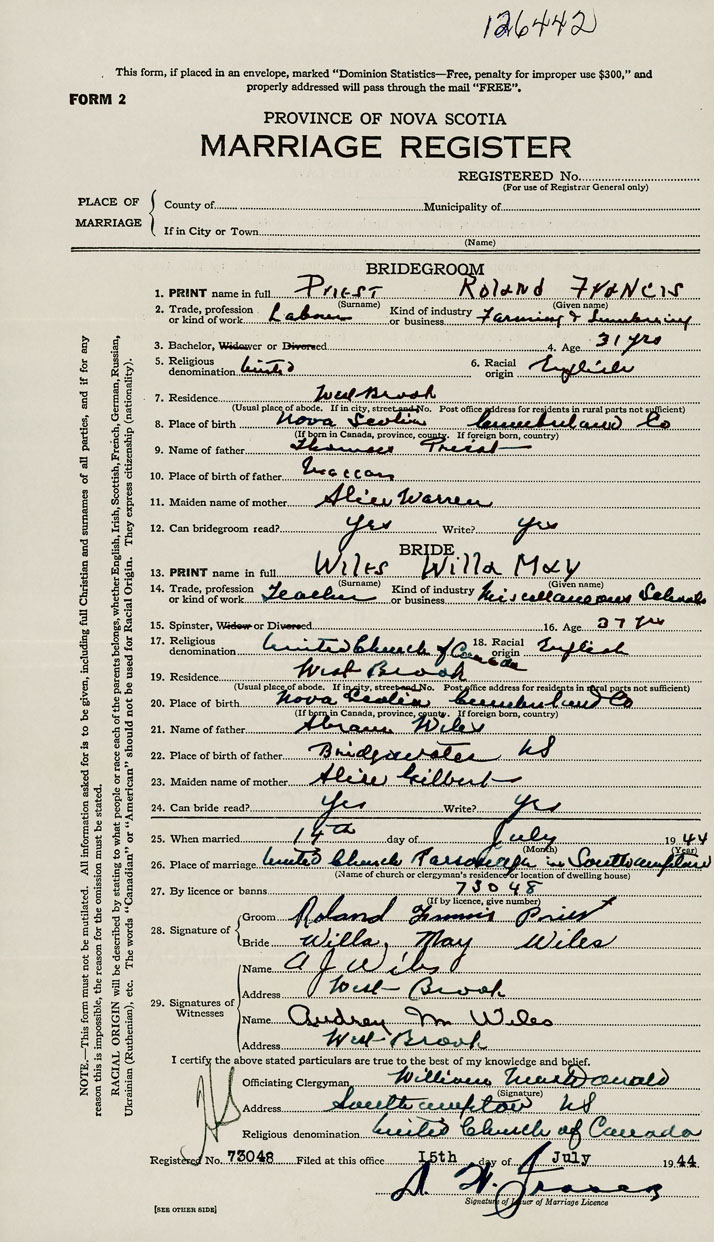 126442
This form, if placed in an envelope, marked "Dominion Statistics—Free, penalty for improper use $300," and
properly addressed will pass through the mail "FREE".
FORM 2
PROVINCE OF NOVA SCOTIA
MARRIAGE REGISTER
REGISTERED No.
(For use of Registrar General only)
PLACE OF MARRIAGE
County of Municipality of
If in City or Town
(Name)
BRIDEGROOM
1. PRINT name in full Priest Roland Francis
(Surname) (Given name)
2. Trade, profession or kind of work Labour Kind of industry or business Farming & Lumbering
3. Bachelor, Widower or Divorced 4. Age 31 yrs
5. Religious denomination United 6. Racial origin English
7. Residence West Brook
(Usual place of abode. If in city, street and No. Post office address for residents in rural parts not sufficient)
8. Place of birth Nova Scotia Cumberland Co
(If born in Canada, province, county. If foreign born, country)
9. Name of father Thomas Priest
10. Place of birth of father Maccan
11. Maiden name of mother Alice Warren
12. Can bridegroom read? yes Write? yes
BRIDE
13. PRINT name in full Wiles Willa May
(Surname) (Given name)
14. Trade, profession or kind of work Teacher Kind of industry or business Miscellaneous Schools
15. Spinster, Widow or Divorced 16. Age 37 yrs
17. Religious denomination United Church of Canada 18. Racial origin English
19. Residence West Brook
(Usual place of abode. If in city, street and No. Post office address for residents in rural parts not sufficient)
20. Place of birth Nova Scotia Cumberland Co
(If born in Canada, province, county. If foreign born, country)
21. Name of father Abram Wiles
22. Place of birth of father Bridgewater NS
23. Maiden name of mother Alice Gilbert
24. Can bride read? yes Write? yes
25. When married 14th day of July 1944
(Month) (Year)
26. Place of marriage United Church Parsonage in Southampton
(Name of church or clergyman's residence or location of dwelling house)
27. By licence or banns 73048
(If by licence, give number)
28. Signature of
Groom Roland Francis Priest
Bride Willa May Wiles
29. Signatures of Witnesses
Name A J Wiles
Address West Brook
Name Audrey M Wiles
Address West Brook
I certify the above stated particulars are true to the best of my knowledge and belief.
Officiating Clergyman William MacDonald
(Signature)
Address Southampton NS
Religious denomination United Church of Canada
Registered No. 73048 Filed at this office 15th day of July 1944
Signature of Issuer of Marriage Licence
[SEE OTHER SIDE]
NOTE.—This form must not be mutilated. All information asked for is to be given, including full Christian and surnames of all parties, and if for any
reason this is impossible, the reason for the omission must be stated.
RACIAL ORIGIN will be described by stating to what people or race each of the parents belongs, whether English, Irish, Scottish, French, German, Russian,
Ukrainian (Ruthenian), etc. The words "Canadian" or "American" should not be used for Racial Origin. They express citizenship (nationality).